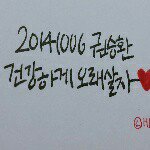 20141006 권승환
건강하게 오래살자